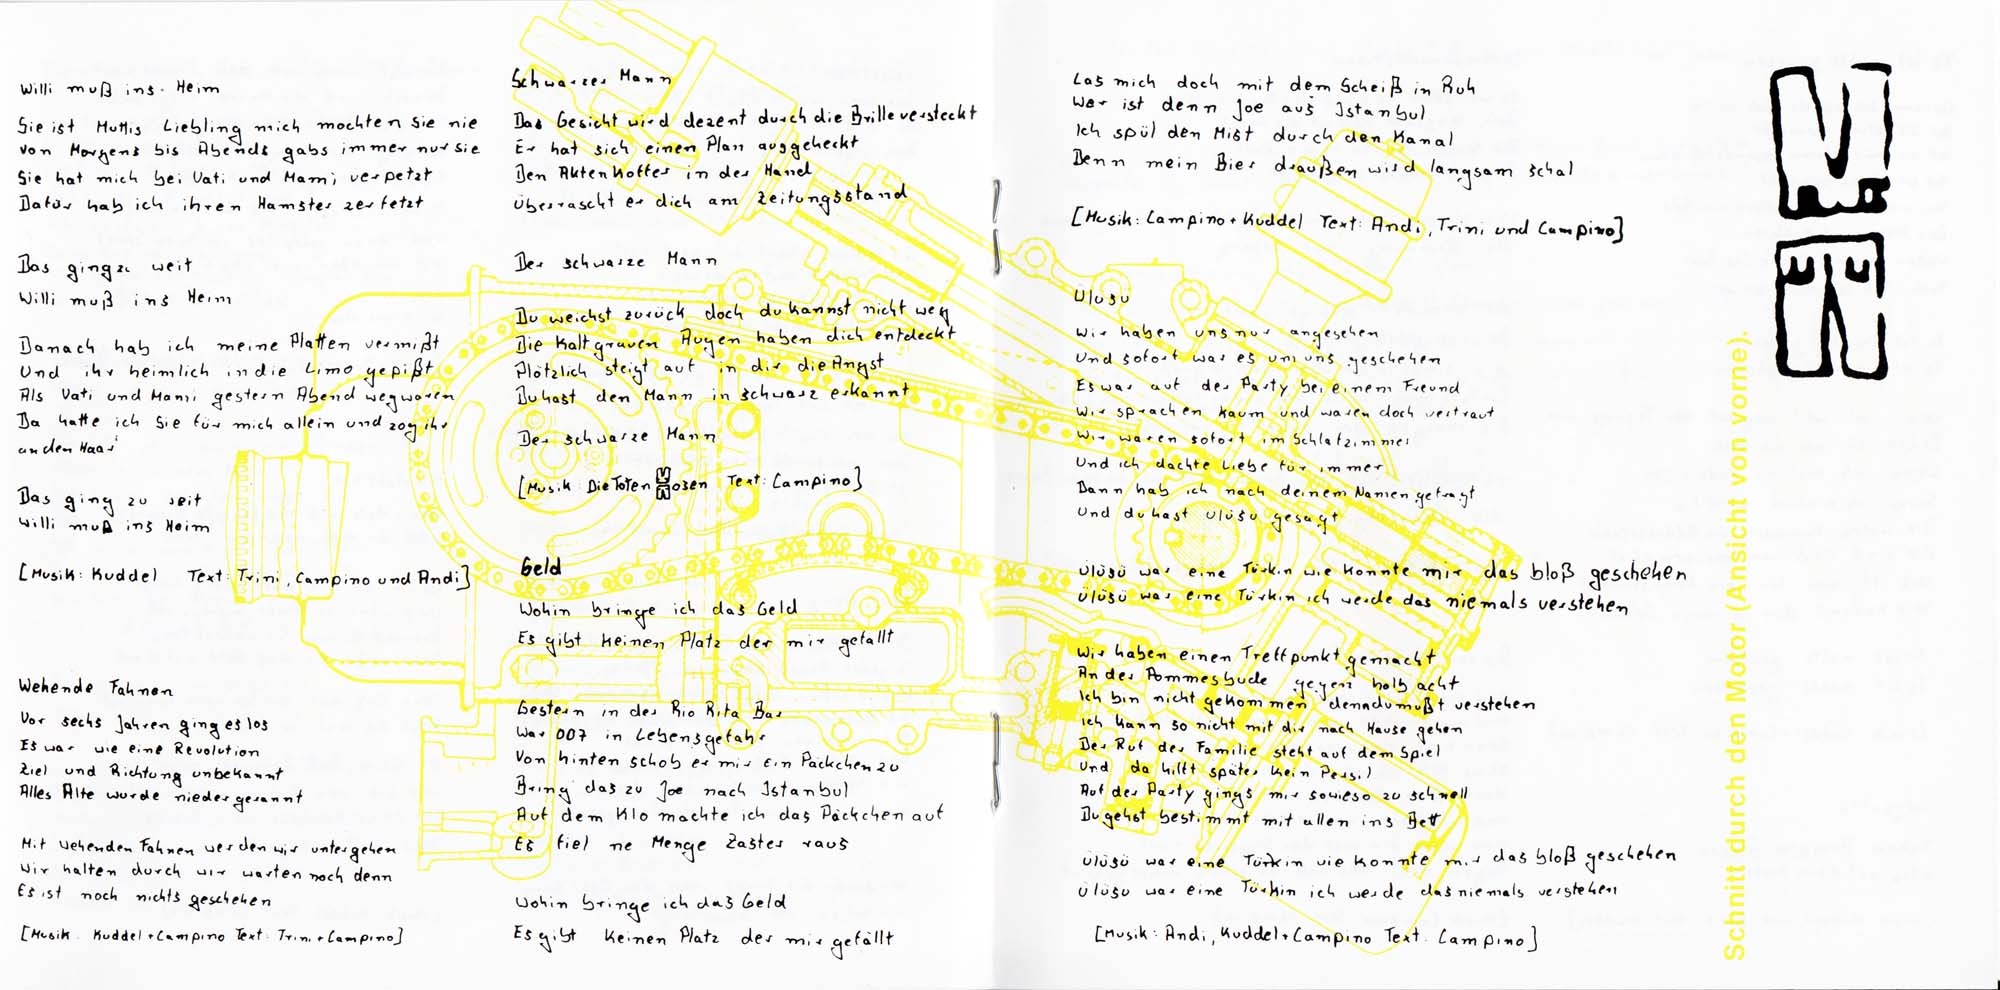 Willi muß ins Heim
Sie ist Muttis Liebling mich mochten sie nie
von Morgens bis Abends gabs immer nur sie
Sie hat mich bei Vati und Mami verpetzt
Dafür hab ich ihren Hamster zerfetzt
Das ging zu weit
Willi muß ins Heim
Danach hab ich meine Platten vermißt
Und ihr heimlich in die Limo gepißt
Als Vati und Mami gestern Abend weg waren
Da hatte ich Sie für mich allein und zog ihr
an den Haar
Das ging zu weit
Willi muß ins Heim
[Musik: Kuddel Text: Trini, Campino und Andi]
Wehende Fahnen
Vor sechs Jahren ging es los
Es war wie eine Revolution
Ziel und Richtung unbekannt
Alles Alte wurde niedergerannt
Mit wehenden Fahnen werden wir untergehen
Wir halten durch wir warten noch denn
Es ist noch nichts geschehen
[Musik: Kuddel + Campino Text: Trini + Campino]
Schwarzer Mann
Das Gesicht wird dezent durch die Brille versteckt
Er hat sich einen Plan ausgeheckt
Den Aktenkoffer in der Hand
überrascht er dich am Zeitungsstand
Der schwarze Mann
Du weichst zurück doch du kannst nicht weg
Die Kaltgrauen Augen haben dich entdeckt
Plötzlich steigt auf in dir die Angst
Du hast den Mann in schwarz erkannt
Der schwarze Mann
[Musik: Die Toten Hosen Text: Campino]
Geld
Wohin bringe ich das Geld
Es gibt keinen Platz der mir gefällt
Gestern in der Rio Rita Bar
War 007 in Lebensgefahr
Von hinten schob er mir ein Päckchen zu
Bring das zu Joe nach Istanbul
Auf dem Klo machte ich das Päckchen auf
Es fiel ne Menge Zaster raus
Wohin bringe ich das Geld
Es gibt keinen Platz der mir gefällt
Las mich doch mit dem Scheiß in Ruh
Wer ist denn Joe aus Istanbul
Ich spül den Mist durch den Kanal
Denn mein Bier draußen wird langsam schal
[Musik: Campino + Kuddel Text: Andi, Trini und Campino]
Ülüsü
Wir haben uns nur angesehen
Und sofort war es um uns geschehen
Es war auf der Party bei einem Freund
Wir sprachen kaum und waren doch vertraut
Wir waren sofort im Schlafzimmer
Und ich dachte Liebe für immer
Dann hab ich nach deinem Namen gefragt
Und du hast Ülüsü gesagt
Ülüsü war eine Türkin wie konnte mir das bloß geschehen
Ülüsü war eine Türkin ich werde das niemals verstehen
Wir haben einen Treffpunkt gemacht
An der Pommesbude gegen halb acht
Ich bin nicht gekommen denn du mußt verstehen
Ich kann so nicht mit dir nach Hause gehen
Der Ruf der Familie steht auf dem Spiel
Und da hilft später kein Persil
Auf der Party gings mir sowieso zu schnell
Du gehst bestimmt mit allen ins Bett
Ülüsü war eine Türkin wie konnte mir das bloß geschehen
Ülüsü war eine Türkin ich werde das niemals verstehen
[Musik: Andi, Kuddel + Campino Text: Campino]
Schnitt durch den Motor (Ansicht von vorne).